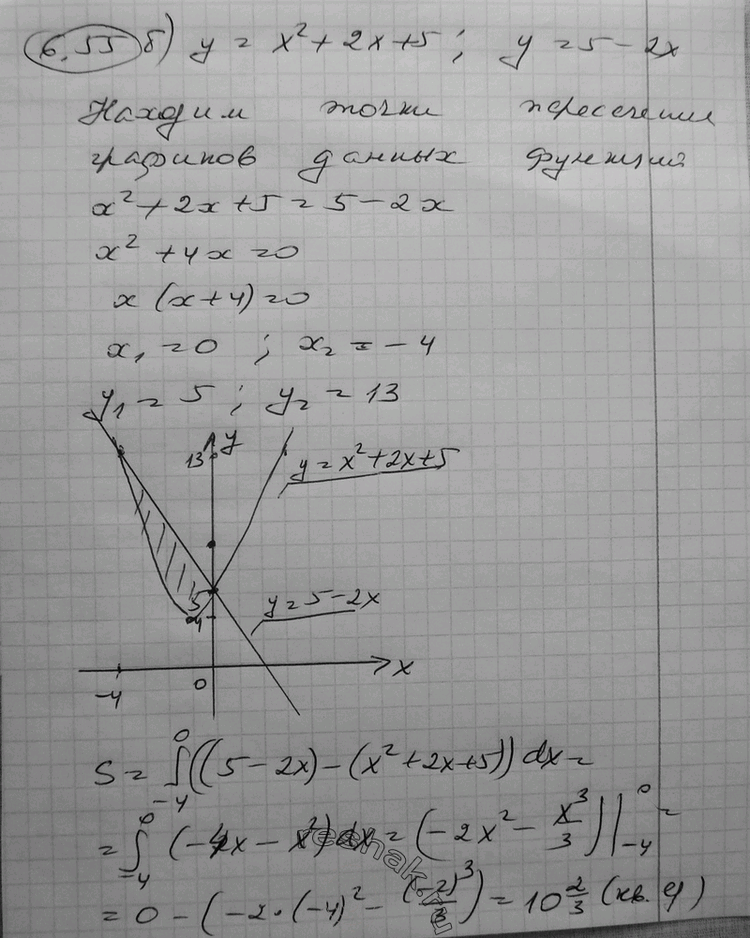 6.55 б) y = x² + 2x + 5 ; y = 5 - 2x
Находим точки пересечения
графиков данных функций
x² + 2x + 5 = 5 - 2x
x² + 4x = 0
x (x + 4) = 0
x₁ = 0 ; x₂ = -4
y₁ = 5 ; y₂ = 13
13 y
y = x² + 2x + 5
5
y = 5 - 2x
4
-4 0 x
S = ∫₋₄⁰ ((5 - 2x) - (x² + 2x + 5)) dx =
= ∫₋₄⁰ (-4x - x²) dx = (-2x² - x³/3) |₋₄⁰ =
= 0 - (-2 · (-4)² - (-2)³/3) = 10 2/3 (кв. ед)
reshak.ru